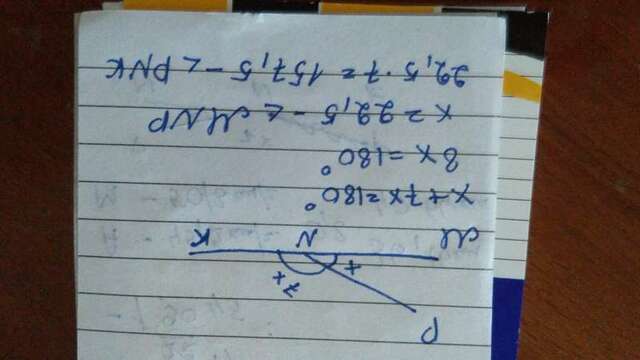 P
7x x
M N K
x + 7x = 180°
8x = 180°
x = 22,5 - ∠ MNP
22,5 · 7 = 157,5 - ∠ PNK